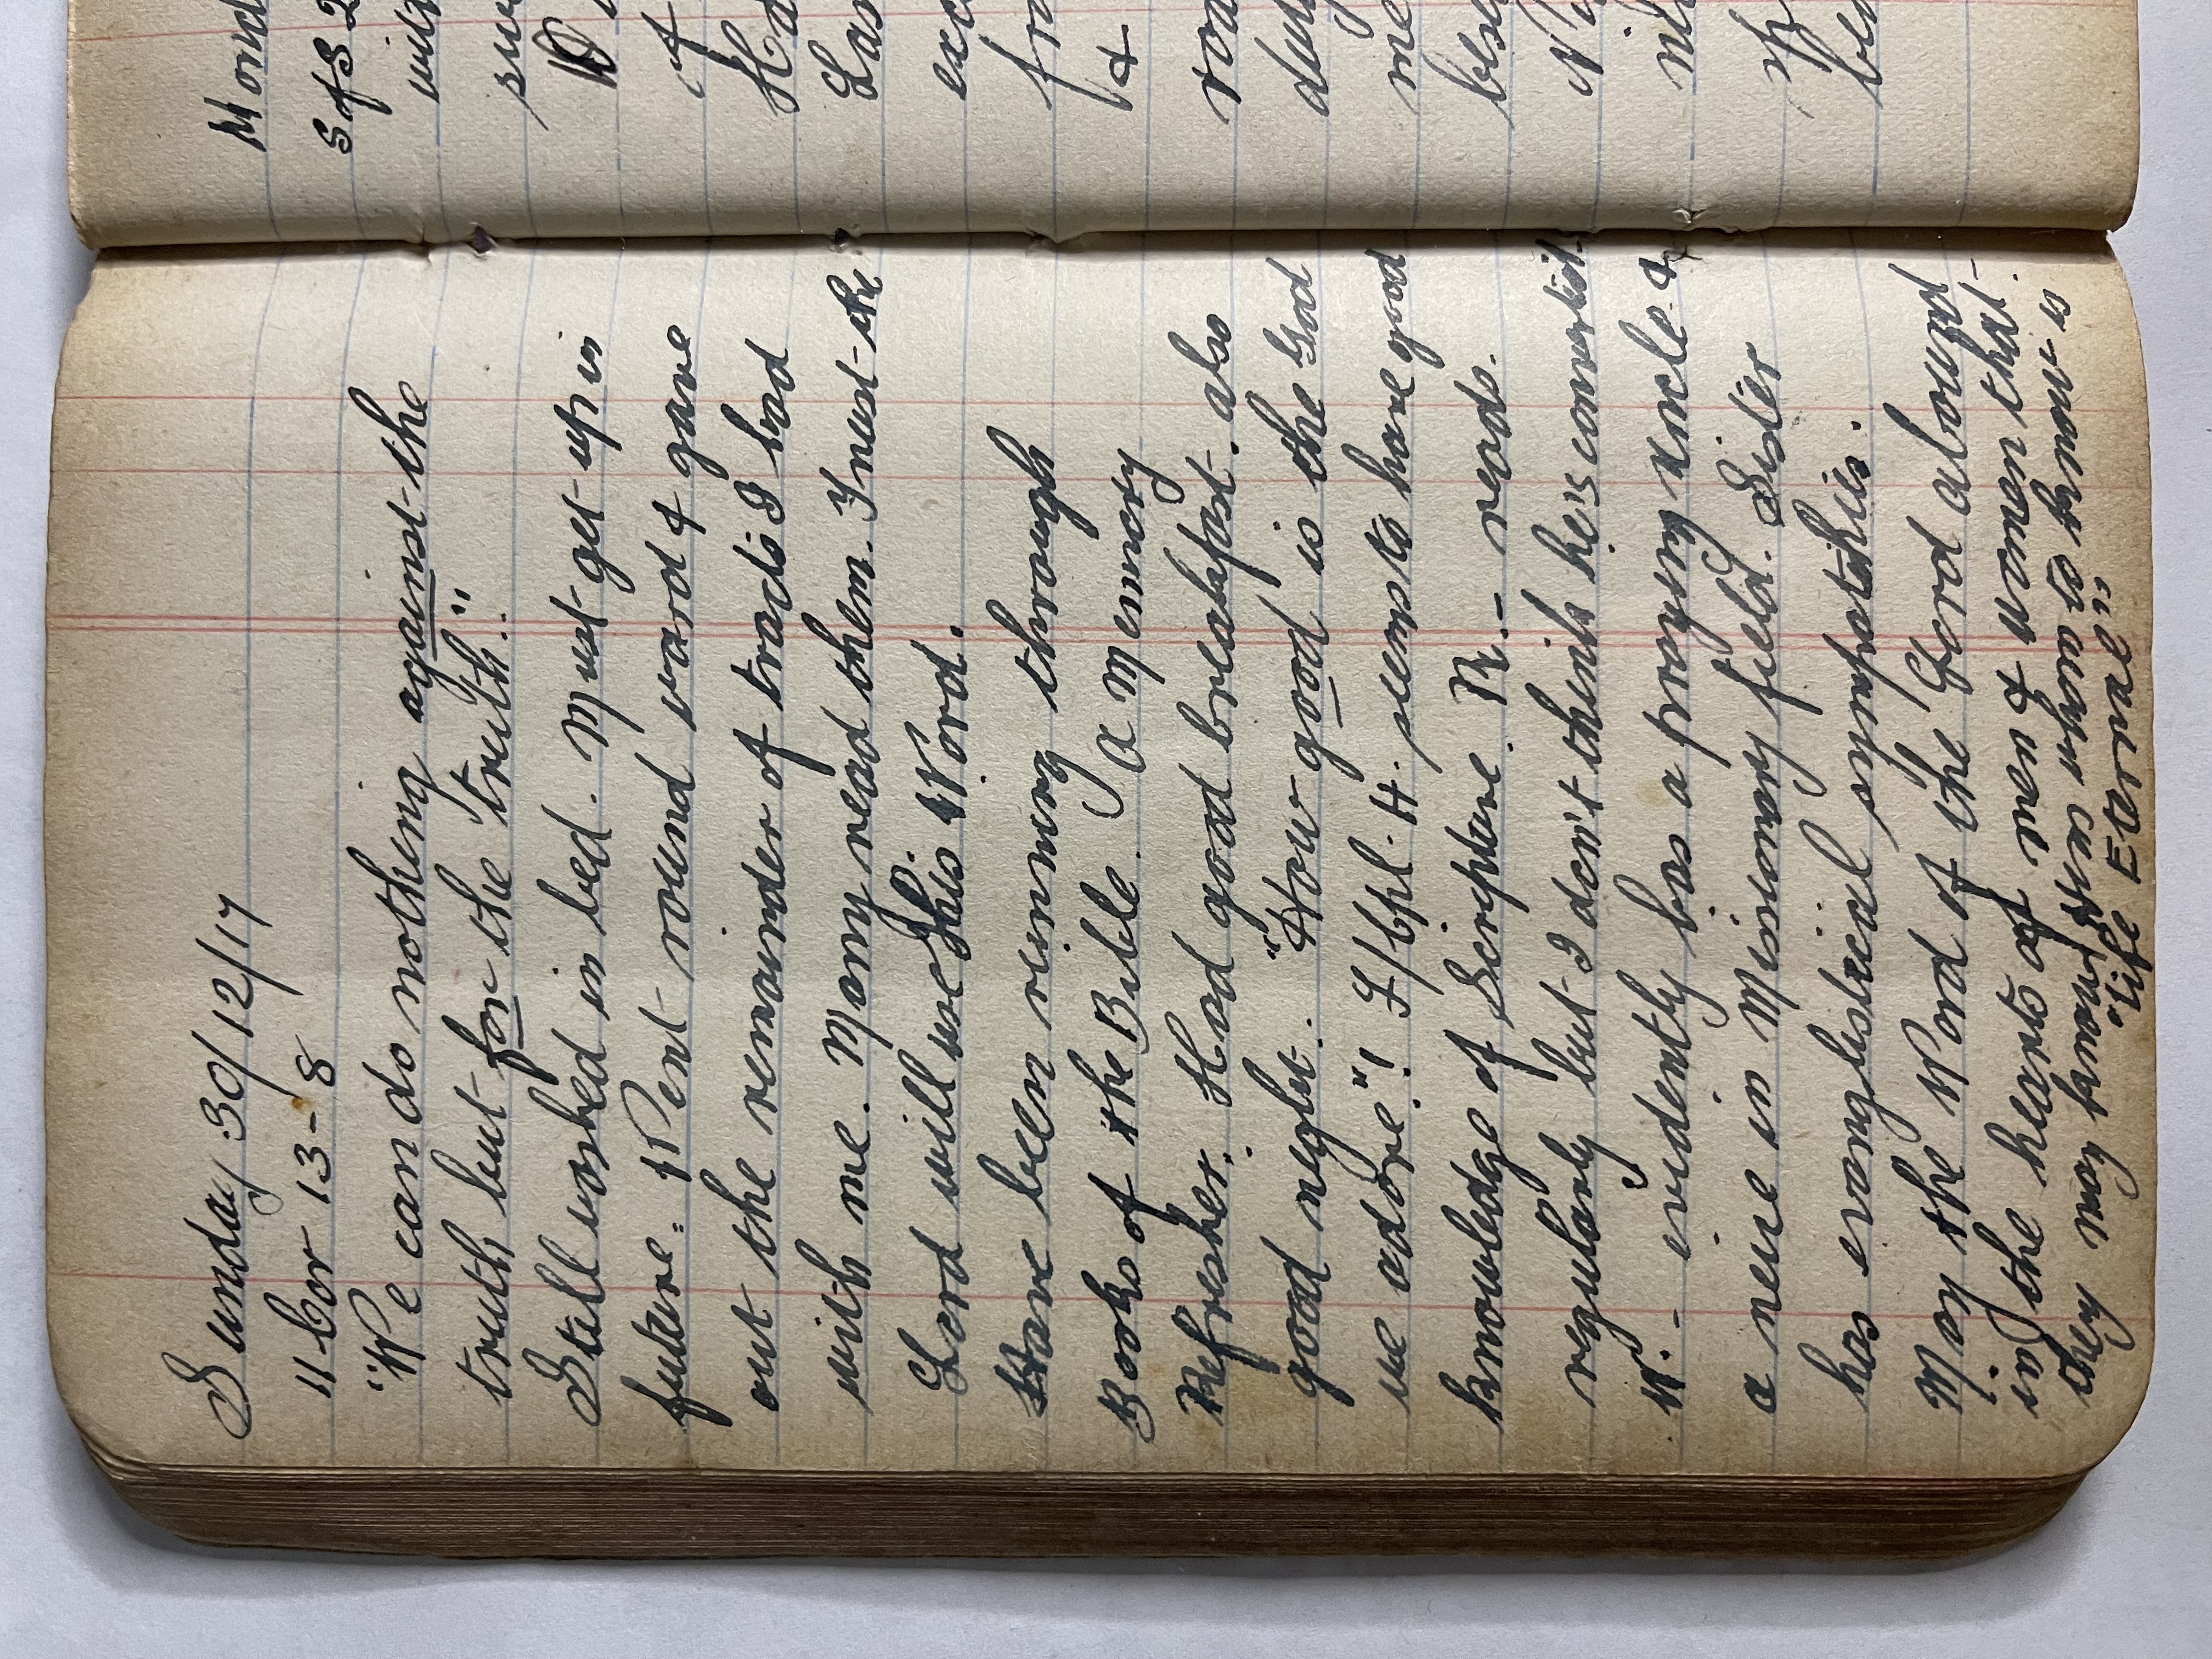 Sunday 30/12/17
11 Cor 13-8
"We can do nothing against the
truth but for the truth."
Still washed in bed. Must get up in
future. Went round ward & gave
out the remainder of tracts I had
with me. Many read them. I trust the
Lord will use His Word.
Have been running through
Books of the Bible. A Memory
Refresher. Had good breakfast. also
good night. "How good is the God
we adore"! L/Cpl. H. seems to have good
knowledge of Scripture. R.- reads
regularly but I don't think he's convertd.
W. - evidently has a praying uncle &
a neice in Missionary field. Sister
has evanglistical sympathies.
May the Word of the Lord abound
in the hearts of men & women that
they may know
as many as
is
"life Eternal"
Mond
S of S 2
with
su
of
Ha
Las
exc
fro
&
roa
duty
me